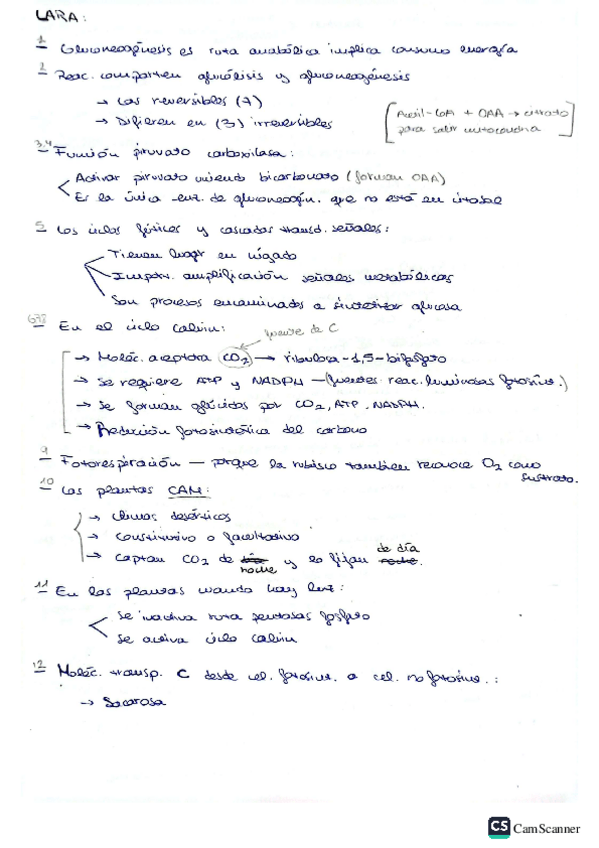 LARA:
1 Gluconeogénesis es ruta anabólica implica consumo energía
2 Reac. comparten glucólisis y gluconeogénesis
→ Las reversibles (7)
→ Difieren en (3) irreversibles
[Acetil-CoA + OAA → citrato
para salir mitocondria]
3,4 Función piruvato carboxilasa:
Activar piruvato uniendo bicarbonato (forman OAA)
Es la única enz. de gluconeogén. que no está en citosol
5 Los ciclos fútiles y cascadas transd. señales:
Tienen lugar en hígado
Import. amplificación señales metabólicas
Son procesos encaminados a sintetizar glucosa
678 En el ciclo calvin:
fuente de C
→ Moléc. aceptora CO2 → ribulosa-1,5-bifosfato
→ Se requiere ATP y NADPH – (fuentes reac. luminosas fotosínt.)
→ Se forman glúcidos por CO2, ATP, NADPH.
→ Reducción fotosintética del carbono
9 Fotorespiración — porque la rubisco también reconoce O2 como
sustrato.
10 Las plantas CAM:
→ Climas desérticos
→ Constitutivo o facultativo
→ Captan CO2 de día noche y lo fijan noche de día.
11 En las plantas cuando hay luz:
Se inactiva ruta pentosas fosfato
Se activa ciclo calvin
12 Moléc. transp. C desde cel. fotosínt. a cel. no fotosínt.:
→ Sacarosa
CS CamScanner